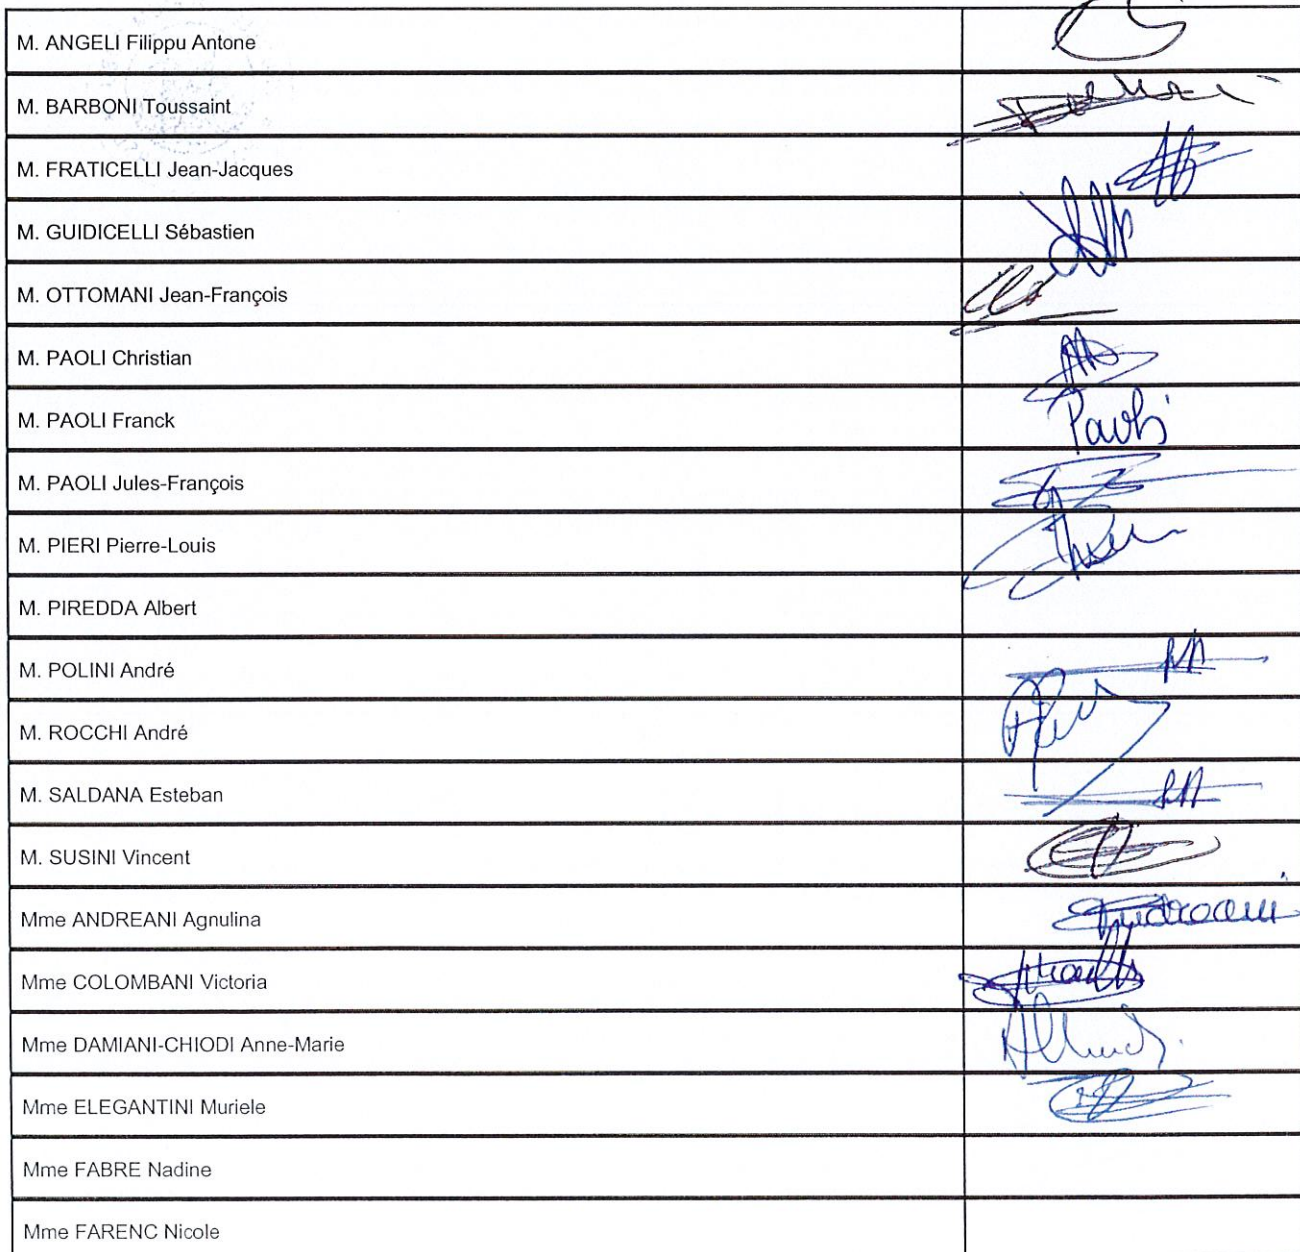 M. ANGELI Filippu Antone
M. BARBONI Toussaint
M. FRATICELLI Jean-Jacques
M. GUIDICELLI Sébastien
M. OTTOMANI Jean-François
M. PAOLI Christian
M. PAOLI Franck
Paoli
M. PAOLI Jules-François
M. PIERI Pierre-Louis
M. PIREDDA Albert
M. POLINI André
M. ROCCHI André
M. SALDANA Esteban
M. SUSINI Vincent
Mme ANDREANI Agnulina
Mme COLOMBANI Victoria
Mme DAMIANI-CHIODI Anne-Marie
Mme ELEGANTINI Muriele
Mme FABRE Nadine
Mme FARENC Nicole